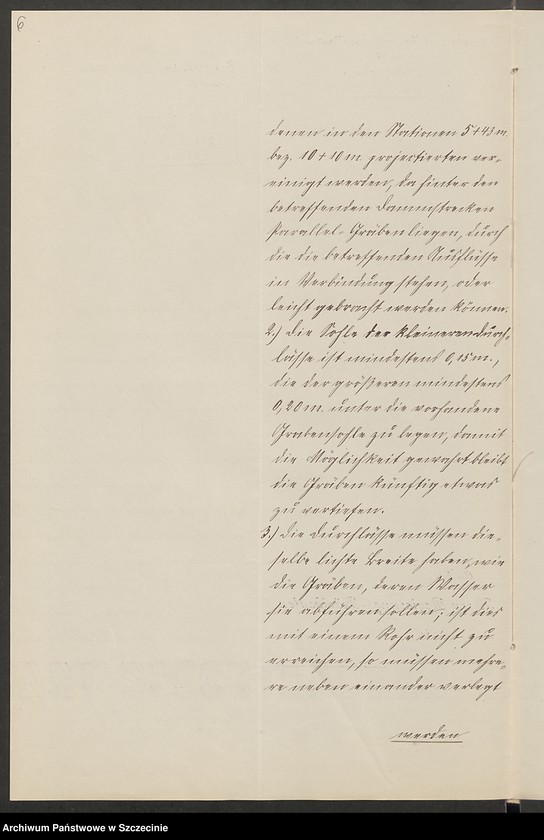 6
denen in den Stationen 5+43 m.
bez. 10+10 m. projectierten ver-
einigt werden, da hinter den
betreffenden Dammstrecken
Parallel-Gräben liegen, durch
die die betreffenden Ausflüsse
in Verbindung stehen, oder
leicht gebracht werden können.
2.) Die Sohle der kleineren Durch-
lässe ist mindestens 0,15 m.,
die der größeren mindestens
0,20 m. unter die vorhandene
Grabensohle zu legen, damit
die Möglichkeit gewahrt bleibt
die Gräben künftig etwas
zu vertiefen.
3.) Die Durchlässe müssen die-
selbe lichte Breite haben, wie
die Gräben, deren Wasser
sie abführen sollen; ist dies
mit einem Rohr nicht zu
erreichen, so müssen mehre-
re neben einander verlegt
werden
Archiwum Państwowe w Szczecinie